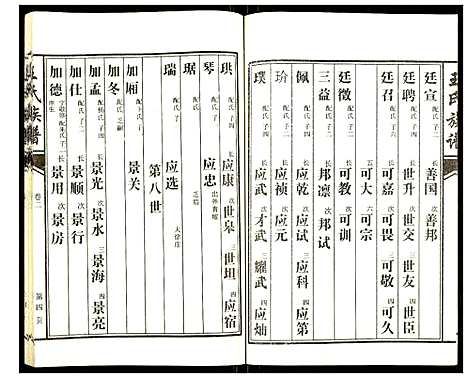 王氏族谱
廷宣 配氏 子二 长 善国 次 善邦
廷聘 配氏 子四 长 世升 次 世交 三 世友 四 世臣
廷召 配氏 子六 长 可嘉 次 可畏 三 可敬 四 可久
五 可大 六 可宗
廷徵 配氏 子二 长 可教 次 可训
三益 配氏 子二 长 邦凛 次 邦试
佩 配氏 子四 长 应乾 次 应试 三 应科 四 应第
玠 配氏 子二 长 应祯 次 应元
璞 配氏 子四 长 应武 次 才武 三 耀武 四 应灿
珙 配氏 子四 长 应康 次 世皋 三 世坦 四 应宿
琴 配氏 子 应忠 出外育嗣
琚 配氏 乏嗣
瑞 配氏 子 应选 大徐庄
第八世
加厢 配氏 子 景关
加冬 配氏 乏嗣
加孟 配杨氏 子四 长 景光 次 景水 三 景海 四 景亮
加仕 配氏 子二 长 景顺 次 景行
加德 字敬修 庠生 配朱氏 子二 长 景用 次 景房
王氏族谱
卷二
第四页